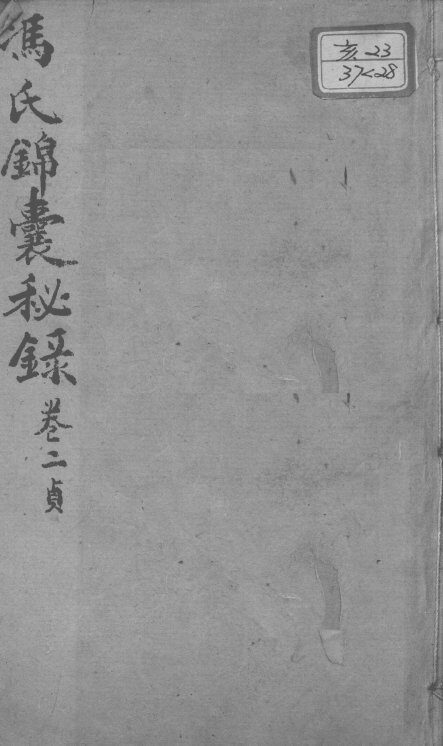 馮氏錦囊秘錄 卷二貞
亥-23
37<28